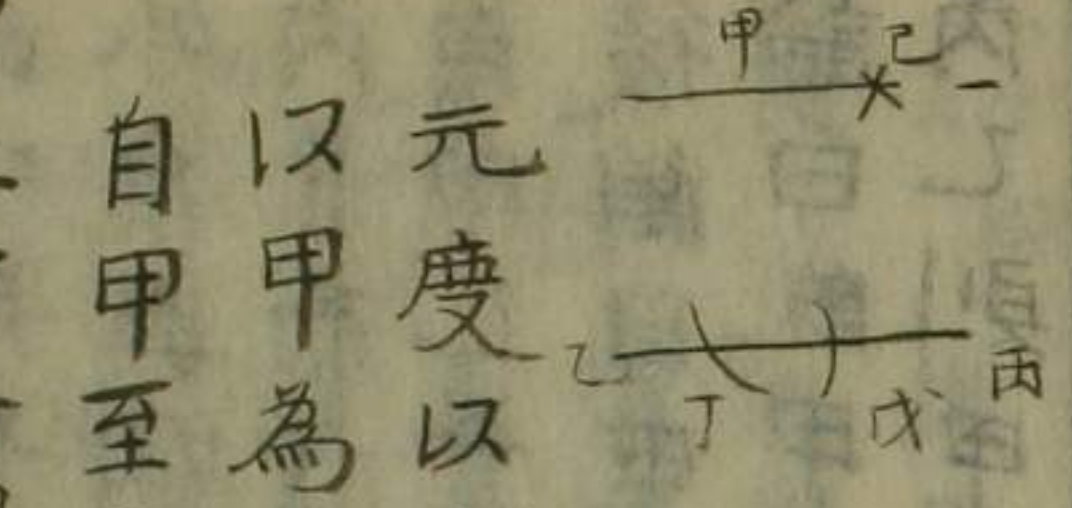 甲 己
乙 丁 戊 丙
元度以
以甲為
自甲至